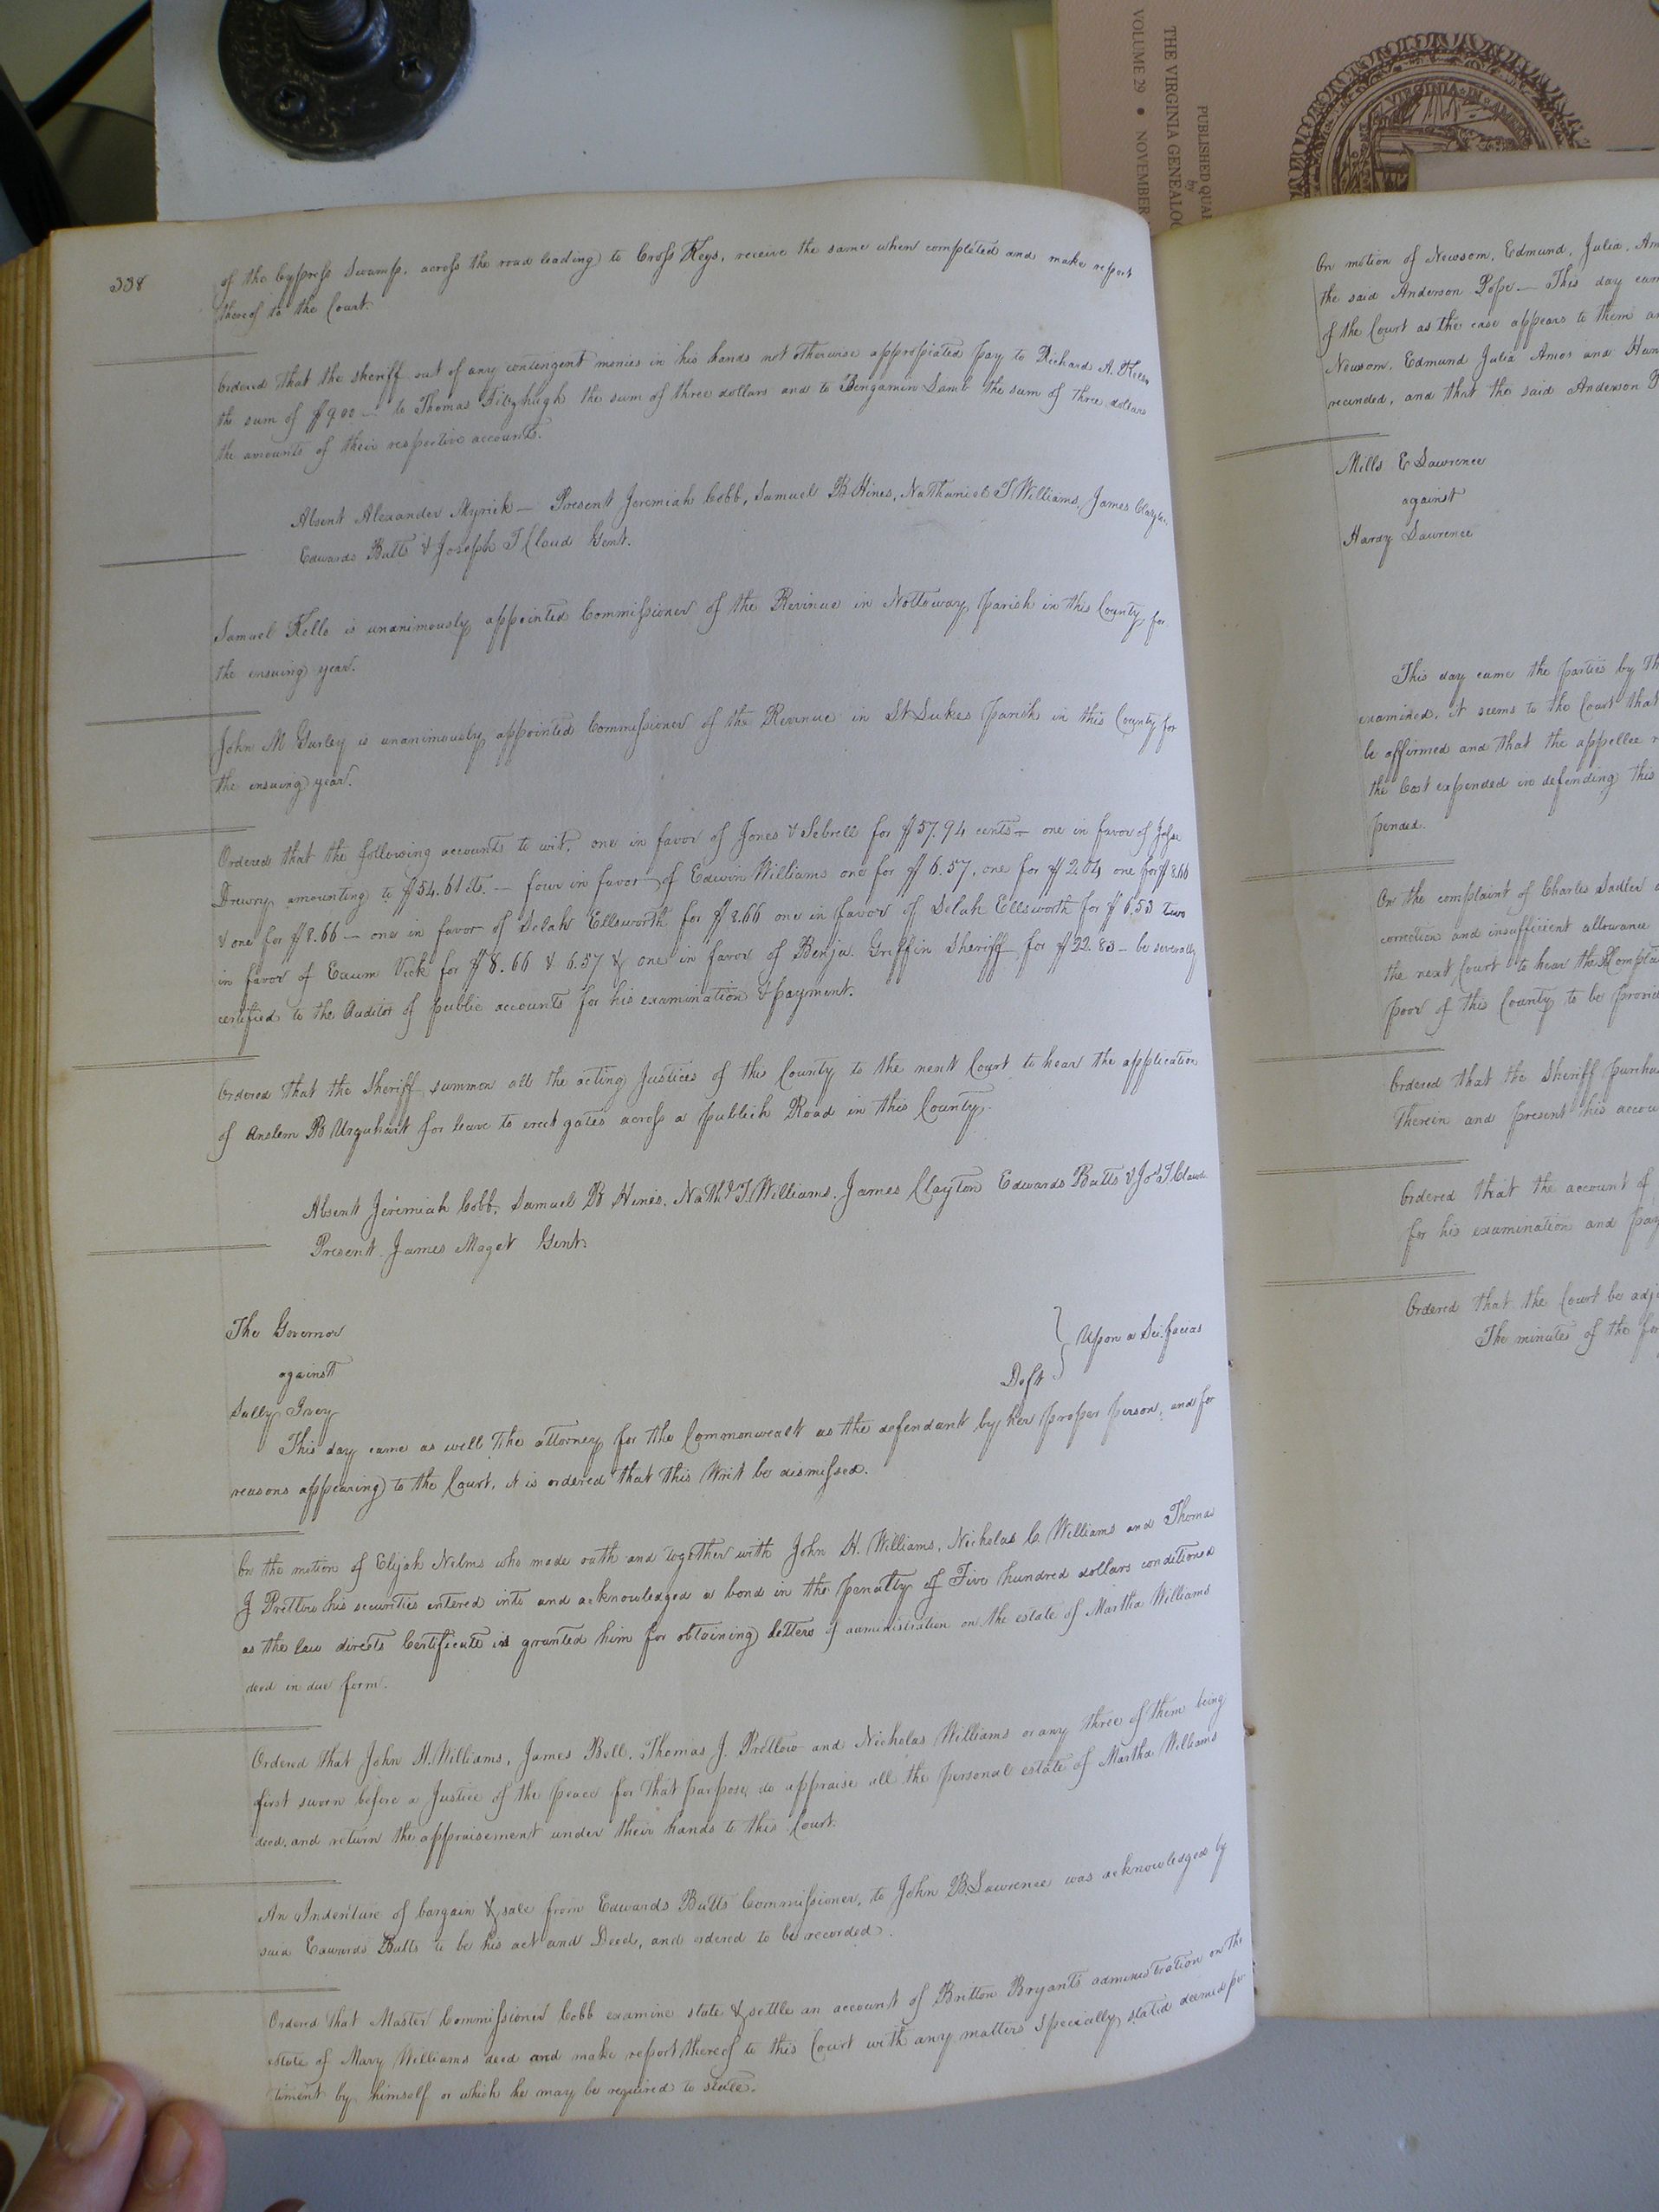 338
of the Cypress Swamp, across the road leading to Cross Keys, receive the same when completed and make report
thereof to the Court.
Ordered that the sheriff out of any contengent monies in his hands not otherwise appropiated pay to Richard A.
the sum of $9.00 — to Thomas Fitzhugh the sum of three dollars and to Bengamin Lamb the sum of three dollars
the amounts of their respective accounts.
Absent Alexander Myrick — Present Jeremiah Cobb, Samuel B Hines, Nathaniel T Williams, James Clayton
Edwards Butts & Joseph T Claud Gent.
Samuel Kello is unanimously appointed Commissioner of the Revinue in Nottoway parish in this County for
the ensuing year.
John M Gurley is unanimously appointed Commissioner of the Revenue in St Lukes parish in this County for
the ensuing year.
Ordered that the following accounts to wit, one in favor of Jones & Sebrell for $57.94 cents — one in favor of Jesse
Drewry amounting to $54.61 cts. — four in favor of Edwin Williams one for $6.57, one for $2.04 one for $8.66
& one for $8.66 — one in favor of Selah Ellsworth for $8.66 one in favor of Selah Ellsworth for $6.53 two
in favor of Exum Vick for $8.66 & 6.57 & one in favor of Benja. Griffin Sheriff for $22.83 — be severally
certified to the Auditor of public accounts for his examination & payment.
Ordered that the Sheriff summon all the acting Justices of this County to the next Court to hear the application
of Anslem B Urquhart for leave to erect gates across a publick Road in this County.
Absent Jeremiah Cobb, Samuel B Hines, Nathl. T. Williams, James Clayton Edwards Butts & Jos T. Claud
Present James Maget Gent.
The Governor
against
Sally Ivey
Deft
Upon a Sci. facias
This day came as well the attorney for the Commonwealt as the defendant by her proper person, and for
reasons appearing to the Court, it is ordered that this Writ be dismissed.
On the motion of Elijah Nelms who made oath and together with John H. Williams, Nicholas C. Williams and Thomas
J Pretlow his securities entered into and acknowledged a bond in the penalty of Five hundred dollars conditioned
as the law directs Certificate is granted him for obtaining letters of administration on the estate of Martha Williams
decd in due form.
Ordered that John H. Williams, James Bell, Thomas J. Pretlow and Nicholas Williams or any three of them being
first sworn before a Justice of the peace for that purpose, do appraise all the personal estate of Martha Williams
decd. and return the appraisement under their hands to this Court.
An Indenture of bargain & sale from Edwards Butts Commissioner, to John B. Lawrence was acknowledged by
said Edwards Butts to be his act and Deed, and ordered to be recorded.
Ordered that Master Commissioner Cobb examine state & settle an account of Britton Bryants administration on the
estate of Mary Williams decd and make report thereof to this Court with any matters specially stated deemed per
timent by himself or which he may be required to state.
On motion of Newsom, Edmund, Julia, Am
the said Anderson Pope — This day cam
of the Court as the case appears to them
Newsom, Edmund Julia Amos and
recinded, and that the said Anderson P
Mills E Lawrence
against
Hardy Lawrence
This day came the parties by th
examined, it seems to the Court that
be affirmed and that the appellee r
the Cost expended in defending this
pended.
On the complaint of Charles Sadler
correction and insufficient allowance
the next Court to hear the Complai
poor of this County to be provid
Ordered that the Sheriff purcha
therein and present his accou
Ordered that the account of
for his examination and pay
Ordered that the Court be adj
The minutes of the fo
VOLUME 29 • NOVEMBER
THE VIRGINIA GENEALOG
PUBLISHED QUA
by
VIRGINIA IN AME